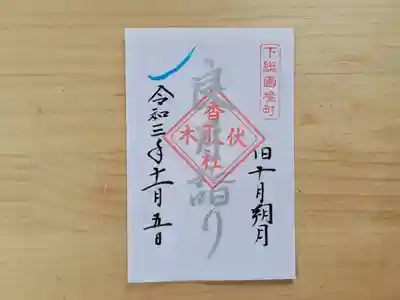 下総國境町
旧十月朔月
良月詣り
伏木
香取社
令和三年十一月五日